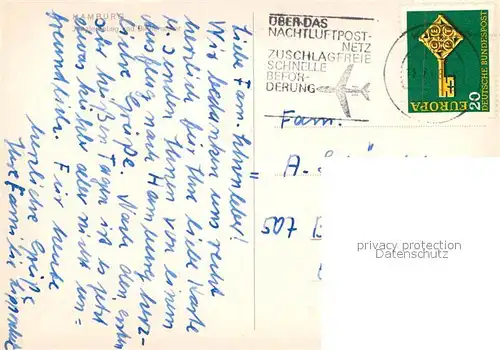 HAMBURG
ÜBER DAS
NACHTLUFTPOST-
NETZ
ZUSCHLAGFREIE
SCHNELLE
BEFÖR-
DERUNG
DEUTSCHE BUNDESPOST
EUROPA
20
Liebe Fam.
Wir bedanken uns recht
herzlich für Ihre liebe Karte
u. senden Ihnen von einem
Ausflug nach Hamburg herz-
liche Grüße. Nach den ersten
sehr heißen Tagen ist es jetzt
etwas kühler aber nicht un=
freundlich. Für heute
herzliche Grüße
Ihre Familie
Fam.
A.
privacy protection
Datenschutz